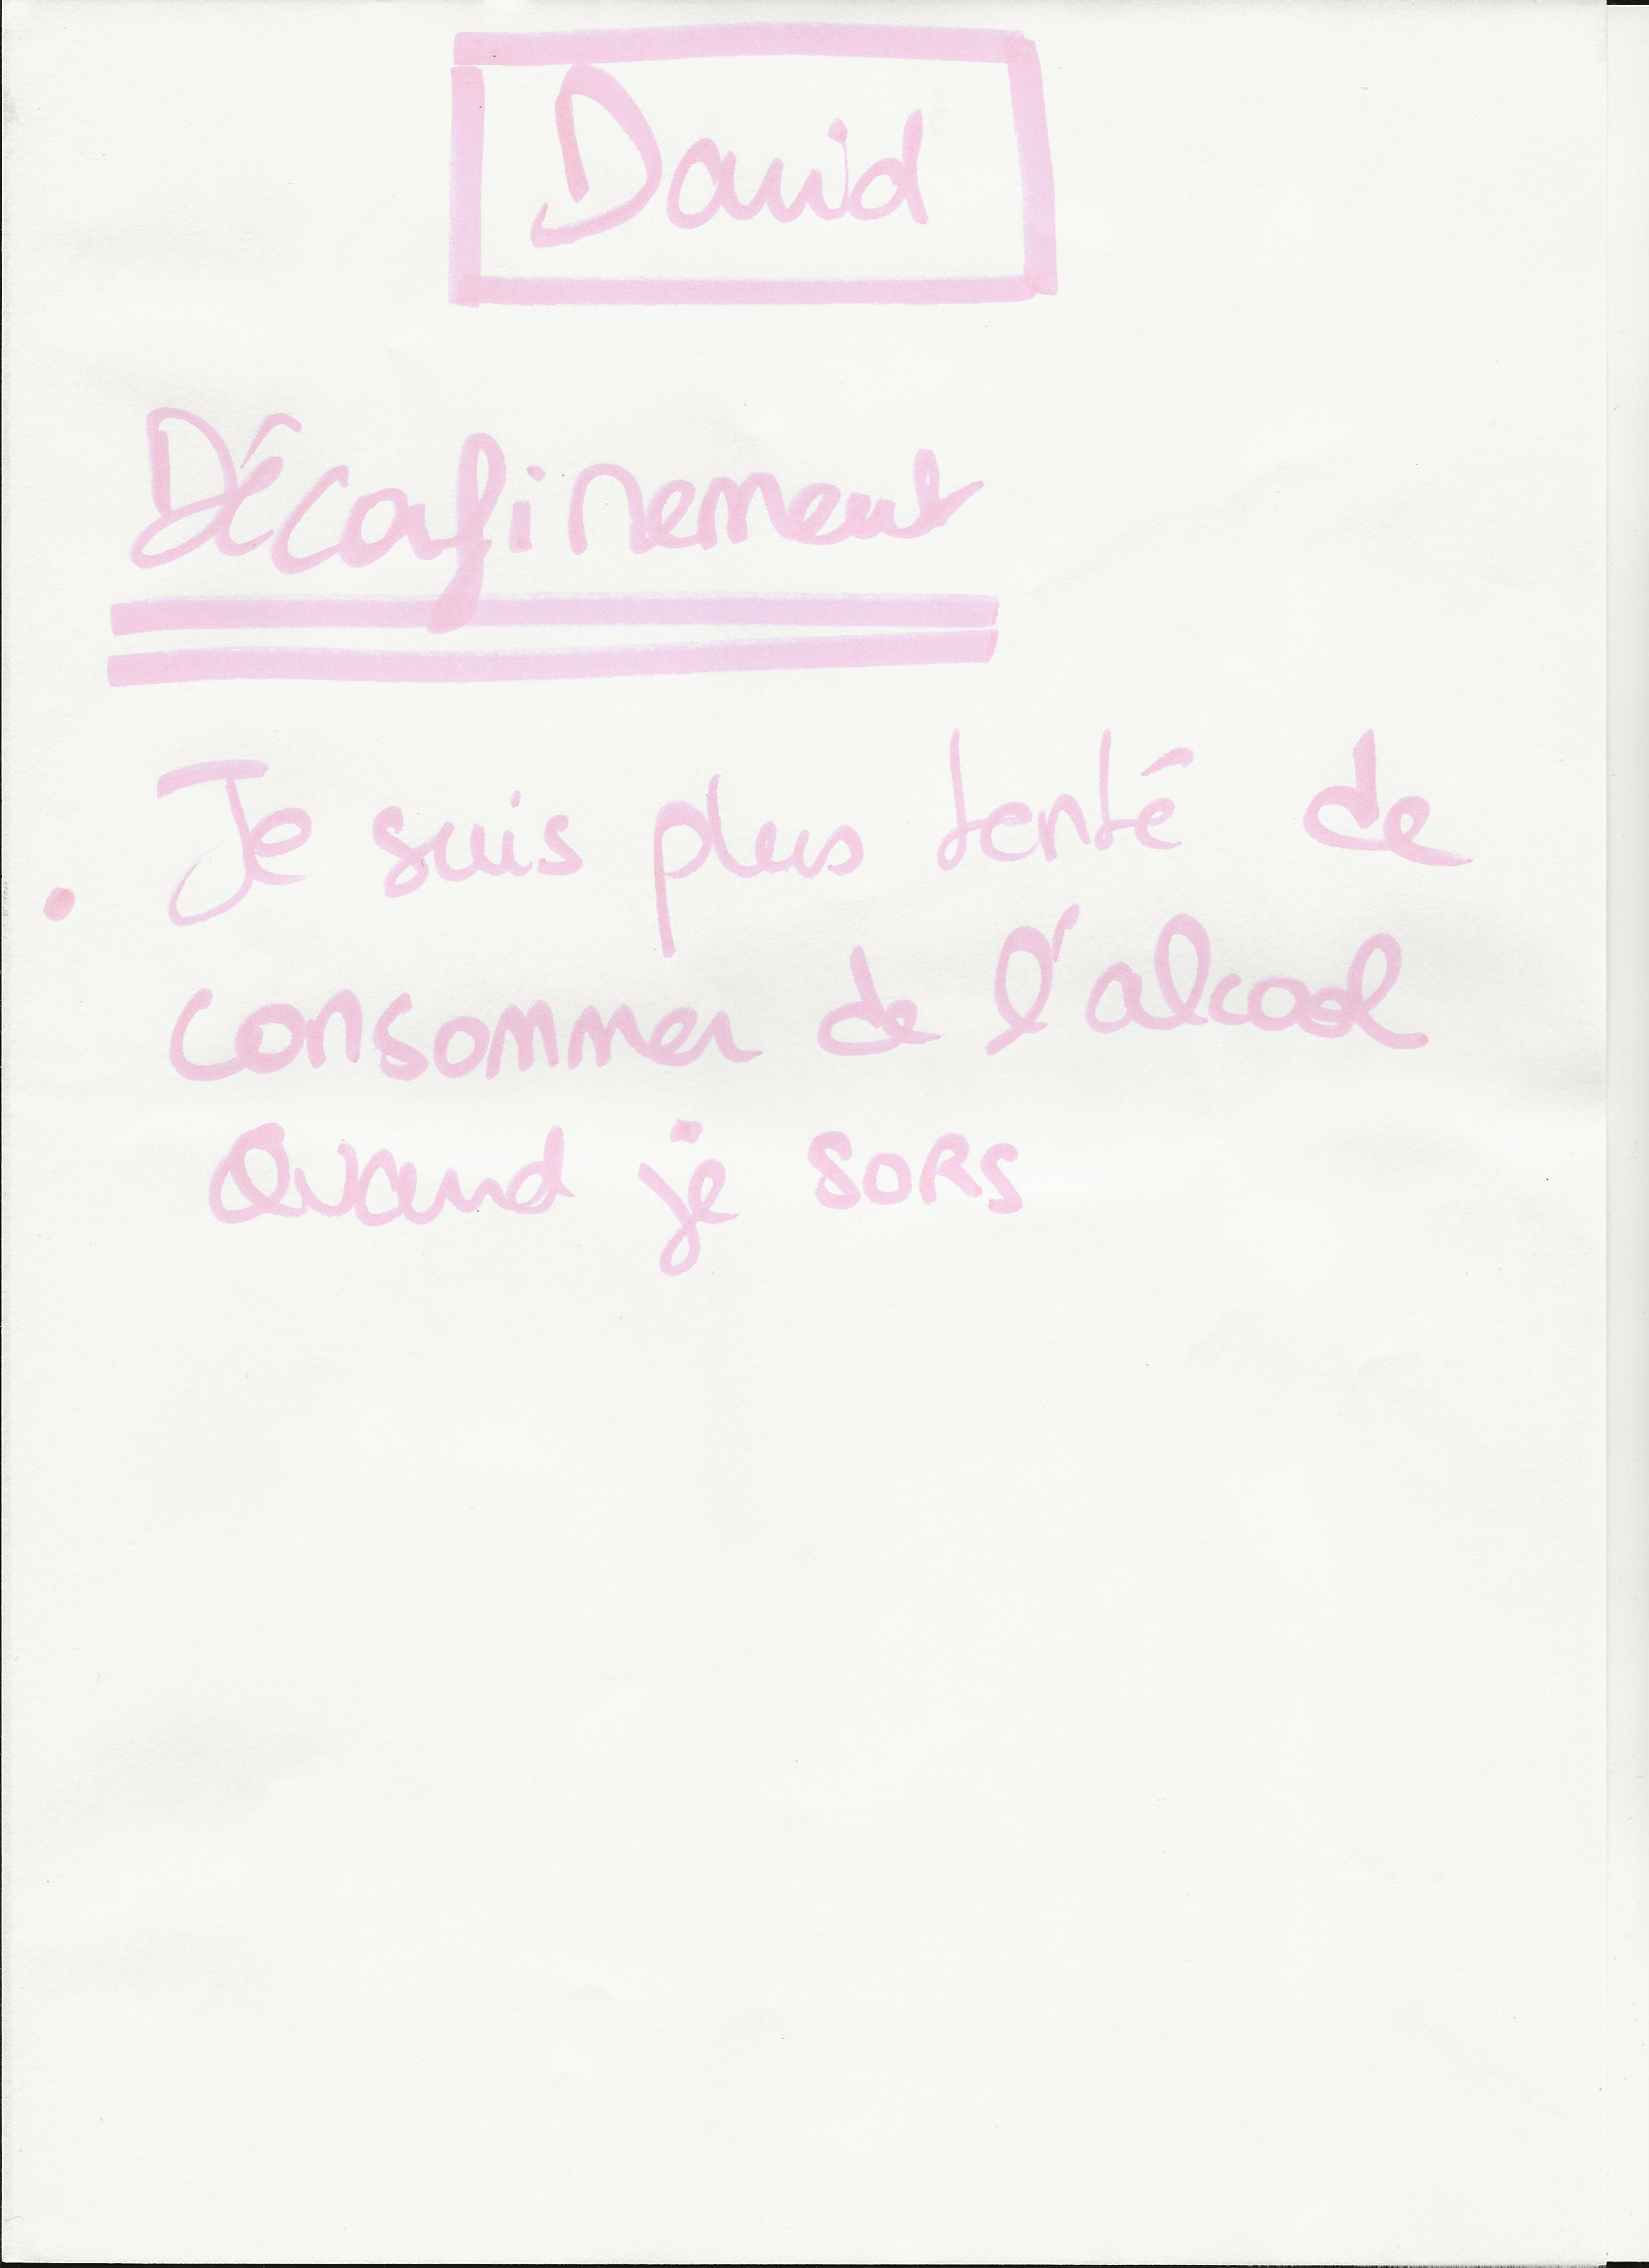 David
Décofinement
. Je suis plus tenté de
consommer de l'alcool
Quand je sors